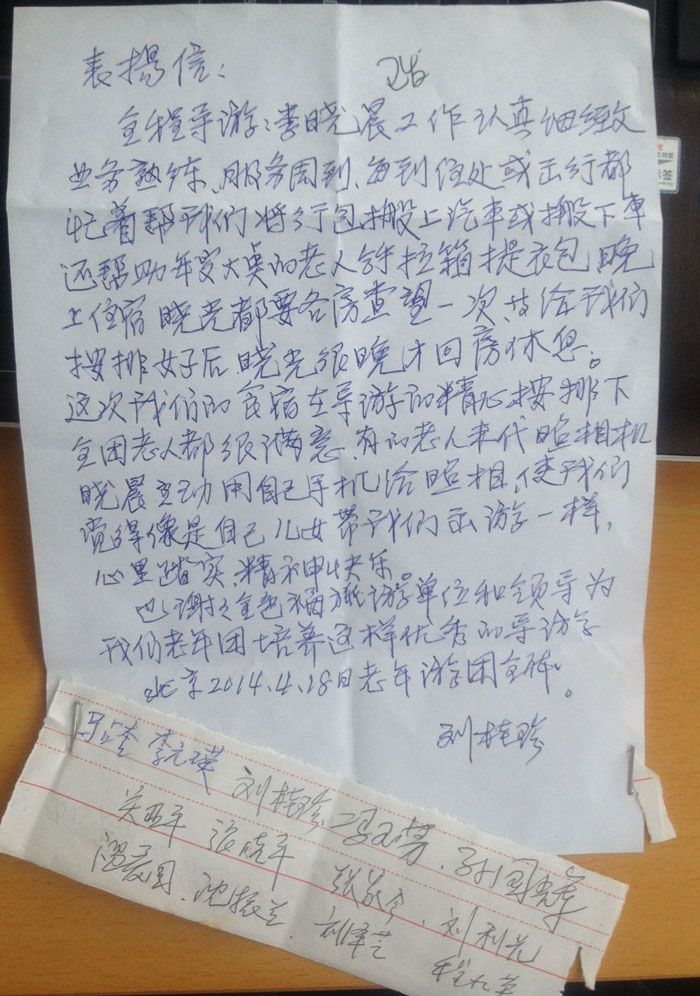 表揚信：
全程导游：李晓晨工作认真细致
业务熟练、服务周到、每到住处或出行都
忙着帮我们将行包搬上汽车或搬下车
还帮助年岁大点的老人拉箱提衣包 晚
上住宿晓晨都要各房查望一次、给我们
按排好后晓晨很晚才回房休息。
这次我们的食宿在导游的精心按排下
全团老人都很满意、有的老人未代照相机
晓晨主动用自己手机给照相、使我们
觉得像是自己儿女带我们出游一样，
心里踏实、精神快乐
也谢谢金色福旅游单位和领导为
我们老年团培养这样优秀的导游
北京2014.4.18日老年游团全体。
刘桂珍
李元瑛 刘桂珍
张晓平 刘利光
沈振兰